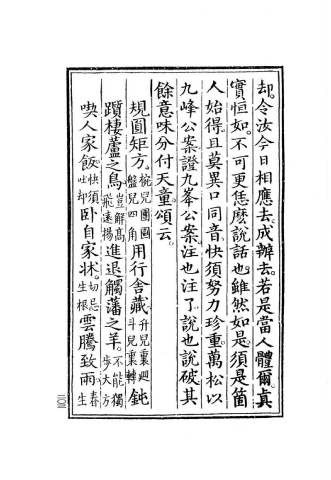 却。令汝今日相應去。成辦去。若是當人體爾真
實恒如。不可更恁麽說話也。雖然如是。須是箇
人始得。且莫異口同音。快須努力珍重。萬松以
九峰公案。證九峯公案。注也注了。說也說破。其
餘意味分付天童。頌云。
規圓矩方。椀兒團團盤兒四角用行舍藏。升兒裏迴斗兒裏轉鈍
躓棲蘆之鳥。豈解高飛遠揚進退觸藩之羊。不能獨步大方
喫人家飯。快須吐却臥自家牀。切忌生根雲騰致雨。春生
二〇三